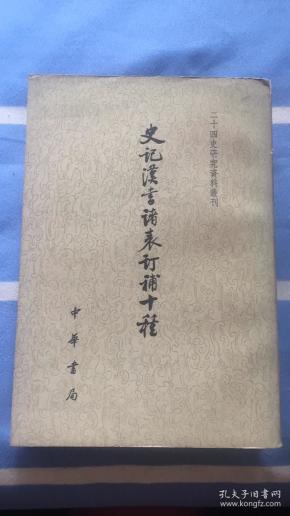 二十四史研究資料叢刊
史記漢書諸表訂補十種
中華書局
孔夫子旧书网